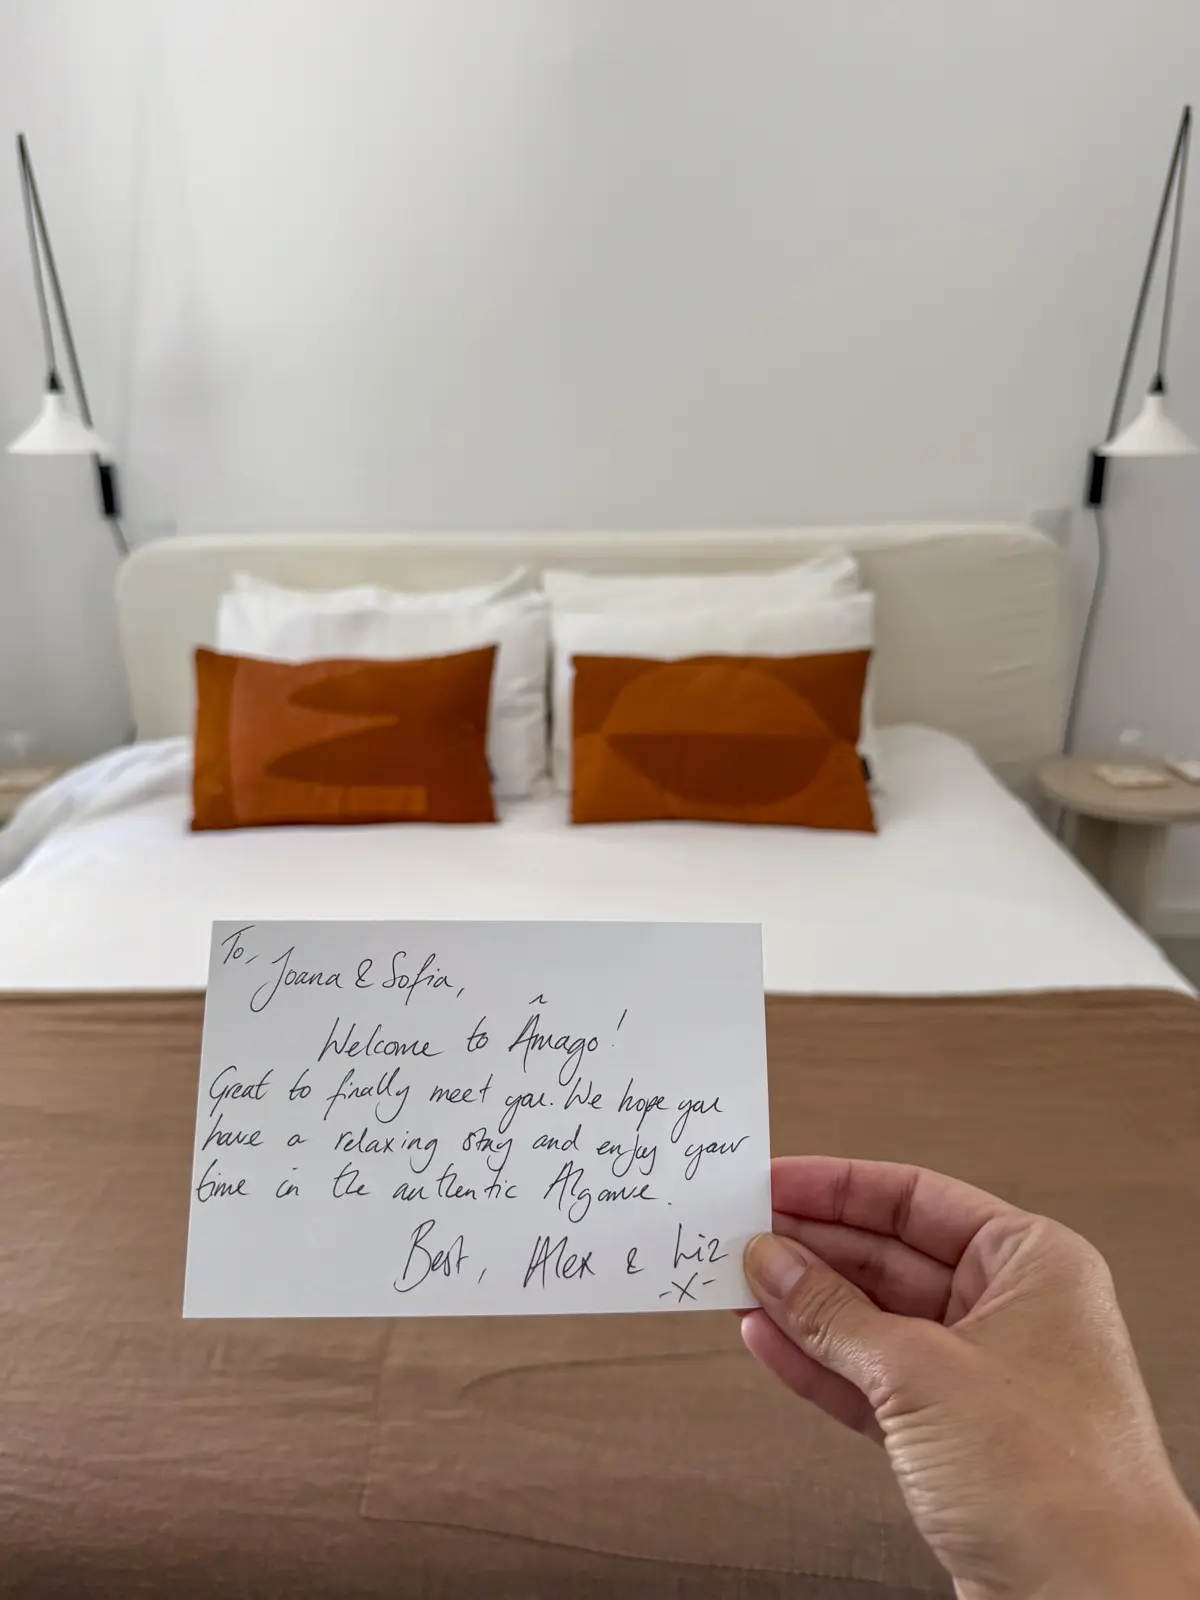 To,
Joana & Sofia,
Welcome to Âmago!
Great to finally meet you. We hope you
have a relaxing stay and enjoy your
time in the authentic Algarve.
Best, Alex & Liz
-X-